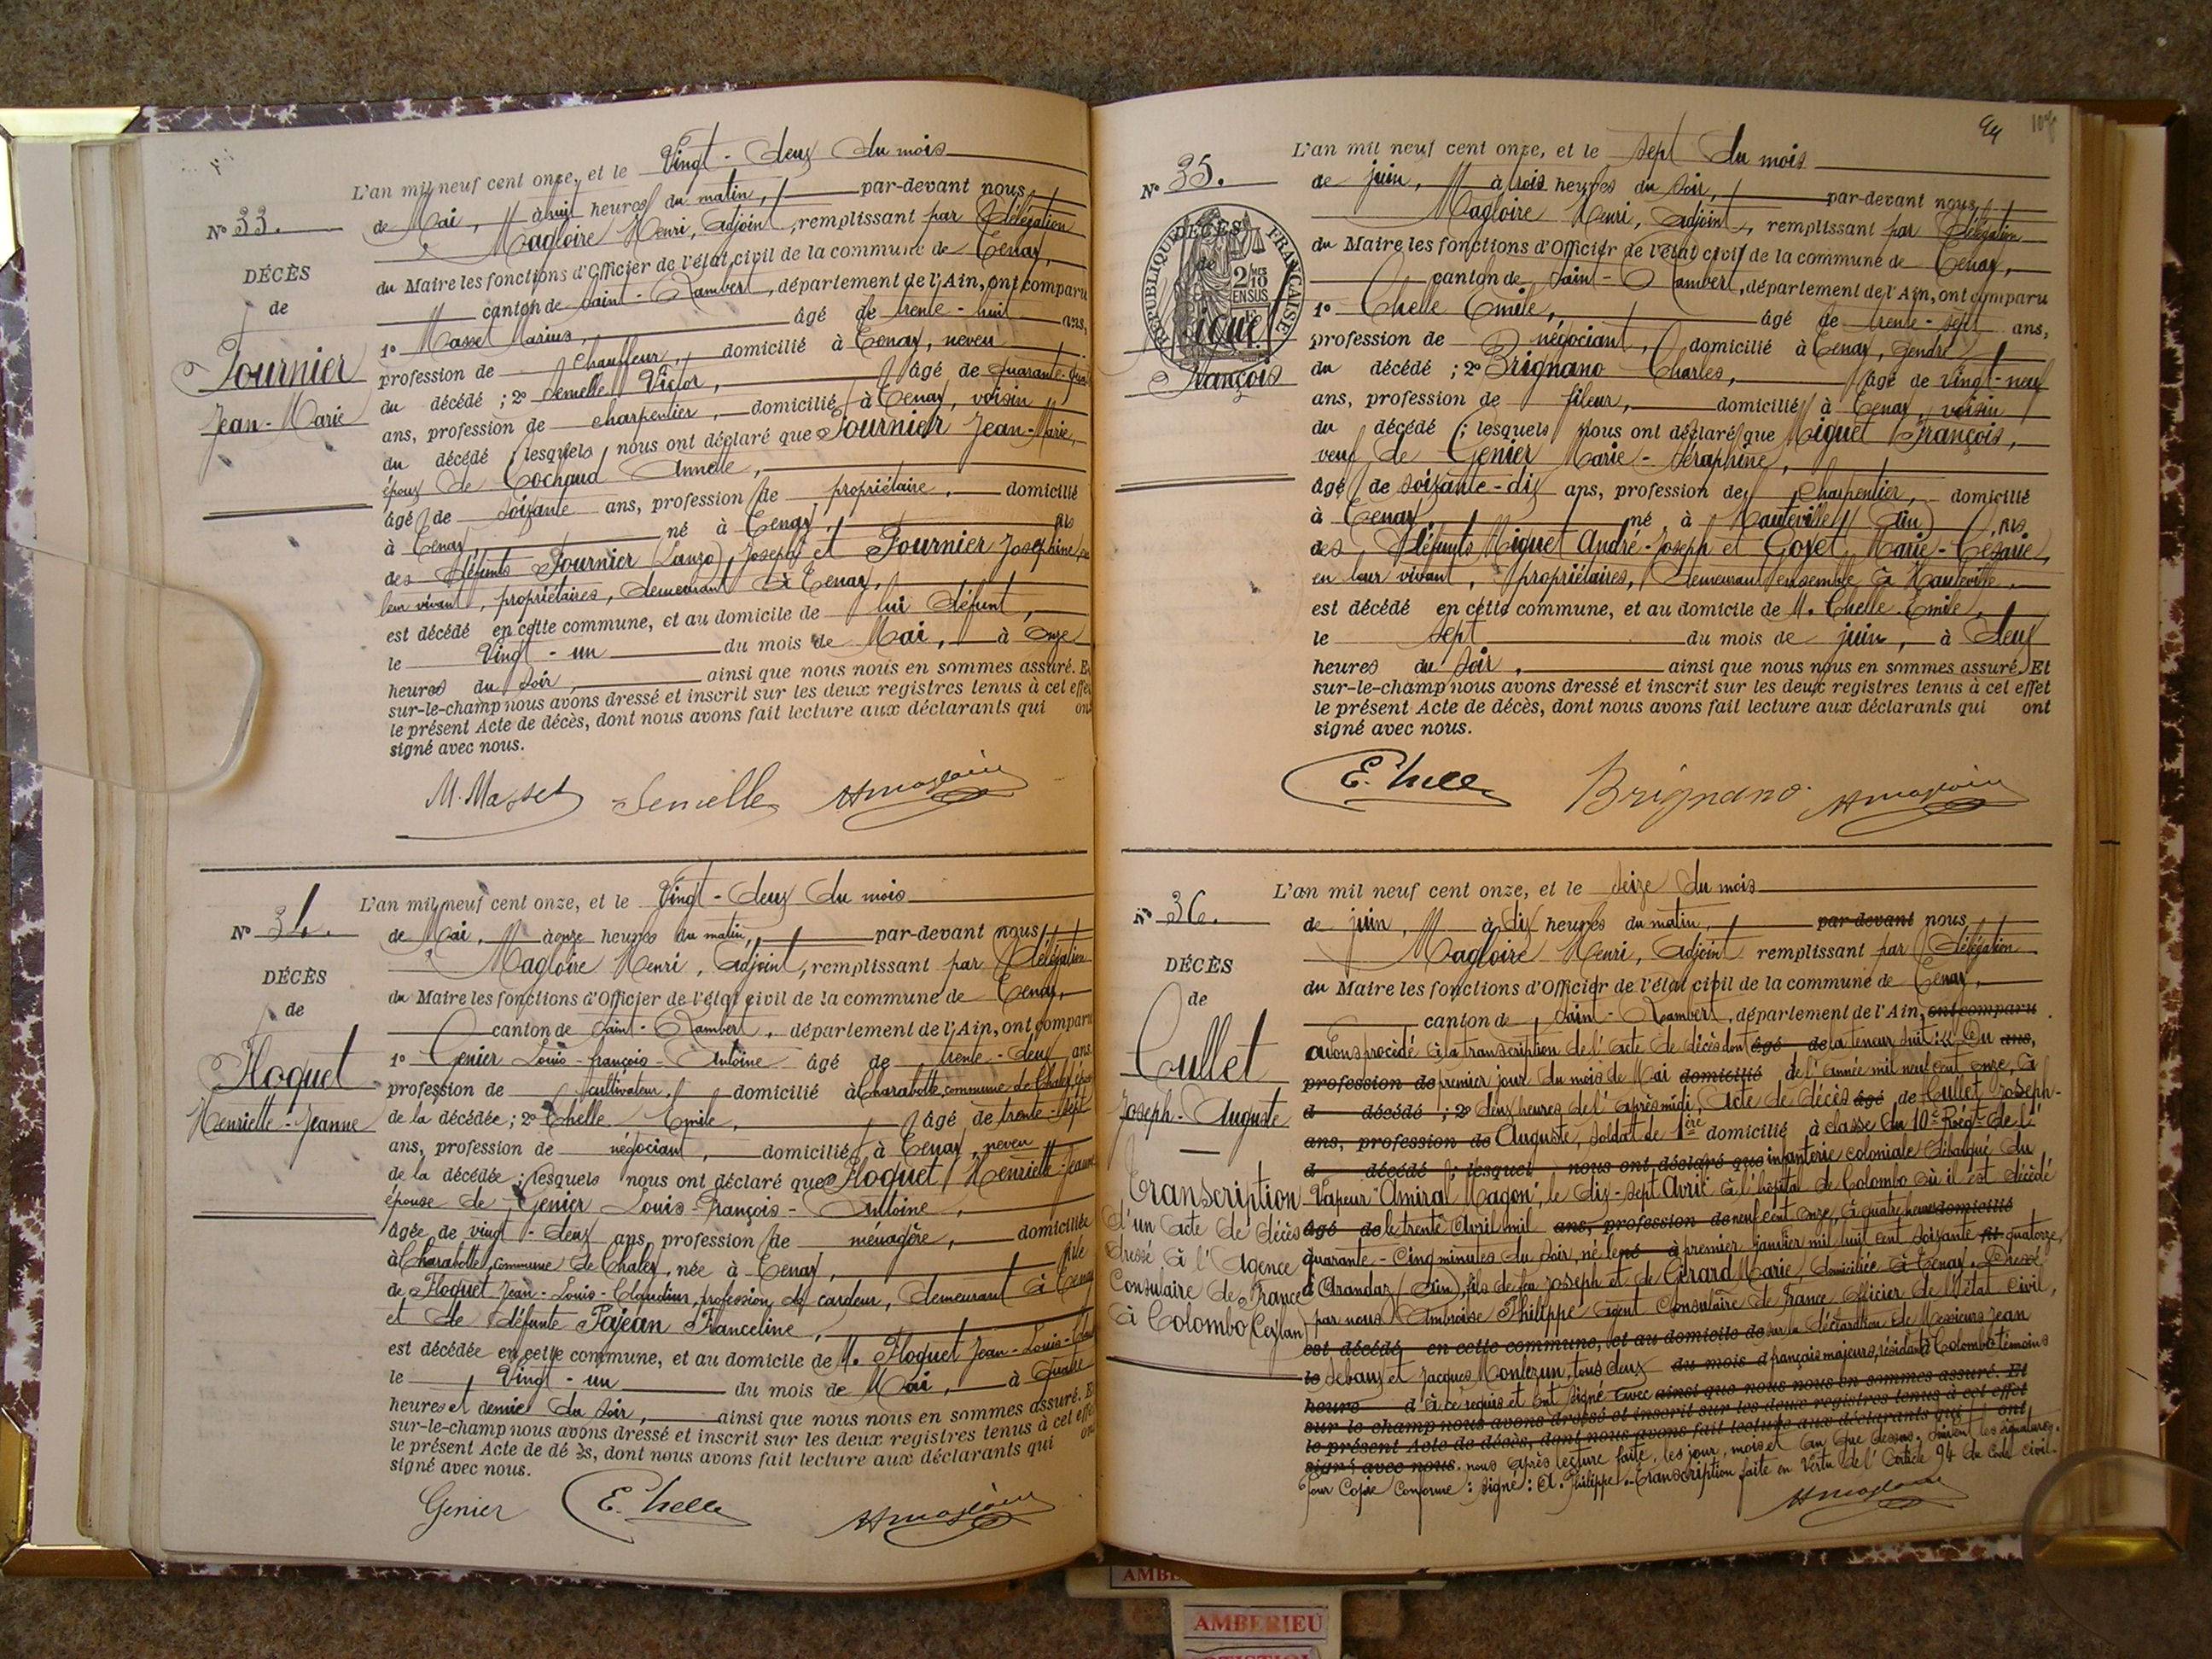 L'an mil neuf cent onze, et le Vingt-deux du mois
N° 33.
de Mai, à huit heures du matin, par-devant nous
Magloire Henri, adjoint, remplissant par délégation
du Maire les fonctions d'Officier de l'état civil de la commune de Tenay,
DÉCÈS
canton de Saint-Rambert, département de l'Ain, ont comparu
de
1° Masset Marius, âgé de trente-huit ans,
Fournier
profession de chauffeur, domicilié à Tenay, neveu
du décédé ; 2° Semelle Victor, âgé de quarante-
Jean-Marie
ans, profession de charpentier, domicilié à Tenay, voisin
du décédé ; lesquels nous ont déclaré que Fournier Jean-Marie,
époux de Cochaud Annette,
âgé de soixante ans, profession de propriétaire, domicilié
à Tenay né à Tenay, fils
des défunts Fournier (Lanzo), Joseph et Fournier Joséphine, en
leur vivant, propriétaires, demeurant à Tenay,
est décédé en cette commune, et au domicile de lui défunt,
le Vingt-un du mois de Mai, à onze
heures du soir, ainsi que nous nous en sommes assuré. Et
sur-le-champ nous avons dressé et inscrit sur les deux registres tenus à cet effet
le présent Acte de décès, dont nous avons fait lecture aux déclarants qui ont
signé avec nous.
M. Masset Semelle HMagloire
L'an mil neuf cent onze, et le Vingt-deux du mois
N° 34.
de Mai, à onze heures du matin, par-devant nous
Magloire Henri, adjoint, remplissant par délégation
DÉCÈS
du Maire les fonctions d'Officier de l'état civil de la commune de Tenay,
de
canton de Saint-Rambert, département de l'Ain, ont comparu
1° Genier Louis-François-Antoine âgé de trente-deux ans
Floquet
profession de cultivateur, domicilié à Charabotte, commune de Chaley, époux
Henriette-Jeanne
de la décédée ; 2° Chelle Emile, âgé de trente-sept
ans, profession de négociant, domicilié à Tenay, neveu
de la décédée ; lesquels nous ont déclaré que Floquet Henriette-Jeanne
épouse de Genier Louis-François-Antoine,
âgée de vingt-deux ans, profession de ménagère, domiciliée
à Charabotte, commune de Chaley, née à Tenay, fille
de Floquet Jean-Louis-Claudius, profession de cardeur, demeurant à Tenay
et de défunte Pajean Franceline,
est décédée en cette commune, et au domicile de M. Floquet Jean-Louis-
le Vingt-un du mois de Mai, à quatre
heures et demie du soir, ainsi que nous nous en sommes assuré. Et
sur-le-champ nous avons dressé et inscrit sur les deux registres tenus à cet effet
le présent Acte de décès, dont nous avons fait lecture aux déclarants qui ont
signé avec nous.
Genier E. Chelle HMagloire
94
L'an mil neuf cent onze, et le sept du mois
N° 35.
de juin, à trois heures du soir, par-devant nous
Magloire Henri, adjoint, remplissant par délégation
DÉCÈS
RÉPUBLIQUE FRANÇAISE
de
2/10 EN SUS
du Maire les fonctions d'Officier de l'état civil de la commune de Tenay,
canton de Saint-Rambert, département de l'Ain, ont comparu
Miguet
1° Chelle Emile, âgé de trente-sept ans,
François
profession de négociant, domicilié à Tenay, gendre
du décédé ; 2° Brignano Charles, âgé de vingt-neuf
ans, profession de fileur, domicilié à Tenay, voisin
du décédé ; lesquels nous ont déclaré que Miguet François,
veuf de Genier Marie-Séraphine,
âgé de soixante-dix ans, profession de charpentier, domicilié
à Tenay né à Hauteville (Ain), fils
des défunts Miguet André-Joseph et Goyet Marie-Césarie,
en leur vivant, propriétaires, demeurant ensemble à Hauteville,
est décédé en cette commune, et au domicile de M. Chelle Emile,
le sept du mois de juin, à deux
heures du soir, ainsi que nous nous en sommes assuré. Et
sur-le-champ nous avons dressé et inscrit sur les deux registres tenus à cet effet
le présent Acte de décès, dont nous avons fait lecture aux déclarants qui ont
signé avec nous.
E. Chelle Brignano HMagloire
L'an mil neuf cent onze, et le seize du mois
N° 36.
de juin, à dix heures du matin, par-devant nous
Magloire Henri, adjoint remplissant par délégation
DÉCÈS
du Maire les fonctions d'Officier de l'état civil de la commune de Tenay,
de
canton de Saint-Rambert, département de l'Ain, ont comparu
Cullet
avons procédé à la transcription de l'acte de décès dont âgé de la teneur suit : " Du ans,
profession de premier jour du mois de Mai domicilié de l'année mil neuf cent onze, à
Joseph-Auguste
d décédé ; 2° deux heures de l'après midi, Acte de décès âgé de Cullet Joseph-
ans, profession de Auguste, soldat de 1ère domicilié à classe du 10e Régt de l'
d décédé ; lesquel nous ont déclaré que infanterie coloniale débarqué du
Transcription
Vapeur "Amiral Magon", le dix-sept Avril à l'hôpital de Colombo où il est décédé
d'un acte de décès
âgé de le trente Avril mil ans, profession de neuf cent onze, à quatre heures domicilié
dressé à l'Agence
quarante-cinq minutes du soir, né le né à premier janvier mil huit cent soixante fil quatorze,
Consulaire de France
à Arandaz (Ain), fils de feu Joseph et de Gérard Marie, domiciliée à Tenay. Dressé
à Colombo (Ceylan)
par nous Ambroise Philippe agent Consulaire de France Officier de l'état civil,
est décédé en cette commune, et au domicile de sur la déclaration de Messieurs Jean
le Sebaux et Jacques Montezun, tous deux du mois d français majeurs, résidant à Colombo témoins
heure d à ce requis et ont signé avec ainsi que nous nous en sommes assuré. Et
sur-le-champ nous avons dressé et inscrit sur les deux registres tenus à cet effet
le présent Acte de décès, dont nous avons fait lecture aux déclarants qui ont
signé avec nous. nous après lecture faite, les jour, mois et an que dessus. Suivent les signatures.
Pour Copie Conforme : signé : A. Philippe. Transcription faite en vertu de l'Article 94 du Code civil.
HMagloire
AMBERIEU